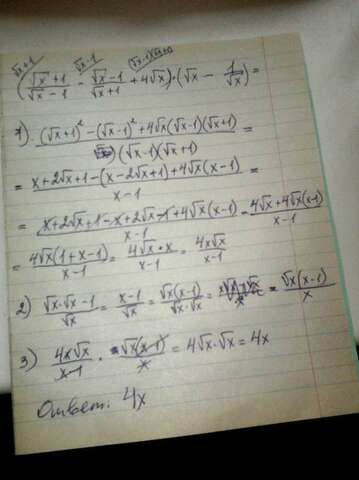 √x+1 √x-1 (√x-1)(√x+1)
((√x+1)/(√x-1) - (√x-1)/(√x+1) + 4√x)·(√x - 1/√x) =
1). ((√x+1)² - (√x-1)² + 4√x(√x-1)(√x+1))/((√x-1)(√x+1)) =
= (x+2√x+1-(x-2√x+1)+4√x(x-1))/(x-1) =
= (x+2√x+1-x+2√x-1+4√x(x-1))/(x-1) = (4√x+4√x(x-1))/(x-1)
= (4√x(1+x-1))/(x-1) = (4√x·x)/(x-1) = (4x√x)/(x-1)
2) (√x·√x-1)/√x = (x-1)/√x = (√x(x-1))/(√x·√x) = (√x(x-1))/x
3) (4x√x)/(x-1) · (√x(x-1))/x = 4√x·√x = 4x
Ответ: 4x